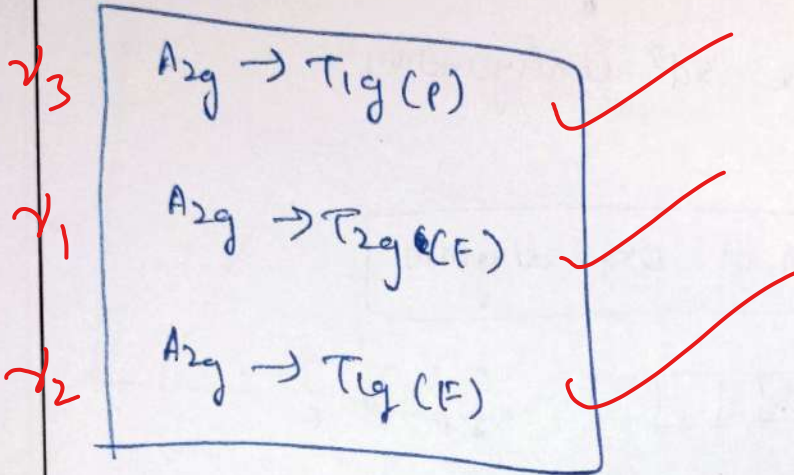 ν3 A2g → T1g (P)
ν1 A2g → T2g (F)
ν2 A2g → T1g (F)